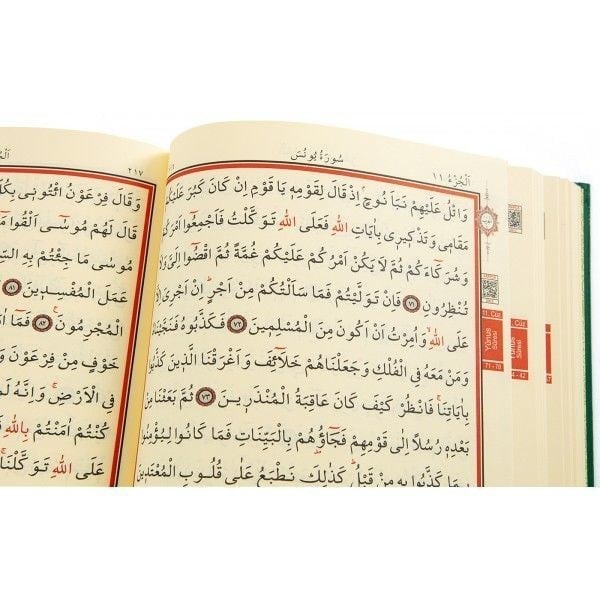 سُورَةُ يُونُسَ
اَلْجُزْءُ ١١
وَاتْلُ عَلَيْهِمْ نَبَاَ نُوحٍۘ اِذْ قَالَ لِقَوْمِه۪ يَا قَوْمِ اِنْ كَانَ كَبُرَ عَلَيْكُمْ
مَقَام۪ي وَتَذْك۪ير۪ي بِاٰيَاتِ اللّٰهِ فَعَلَى اللّٰهِ تَوَكَّلْتُ فَاَجْمِعُٓوا
وَشُرَكَٓاءَكُمْ ثُمَّ لَا يَكُنْ اَمْرُكُمْ عَلَيْكُمْ غُمَّةً ثُمَّ اقْضُٓوا اِلَيَّ
تُنْظِرُونِ ﴿٧١﴾ فَاِنْ تَوَلَّيْتُمْ فَمَا سَاَلْتُكُمْ مِنْ اَجْرٍۜ اِنْ اَجْرِيَ
عَلَى اللّٰهِۙ وَاُمِرْتُ اَنْ اَكُونَ مِنَ الْمُسْلِم۪ينَ ﴿٧٢﴾ فَكَذَّبُوهُ فَنَجَّيْنَاهُ
وَمَنْ مَعَهُ فِي الْفُلْكِ وَجَعَلْنَاهُمْ خَلَٓائِفَ وَاَغْرَقْنَا الَّذ۪ينَ كَذَّبُوا
بِاٰيَاتِنَاۚ فَانْظُرْ كَيْفَ كَانَ عَاقِبَةُ الْمُنْذَر۪ينَ ﴿٧٣﴾ ثُمَّ بَعَثْنَا مِنْ
بَعْدِه۪ رُسُلًا اِلٰى قَوْمِهِمْ فَجَٓاؤُ۫هُمْ بِالْبَيِّنَاتِ فَمَا كَانُوا لِيُؤْمِنُوا
بِمَا كَذَّبُوا بِه۪ مِنْ قَبْلُۜ كَذٰلِكَ نَطْبَعُ عَلٰى قُلُوبِ الْمُعْتَد۪ينَ
11. Cüz
Yûnus
Sûresi
71 - 70
Cüz
4 - 42
٢١٧
وَقَالَ فِرْعَوْنُ ائْتُون۪ي بِكُلِّ
قَالَ لَهُمْ مُوسٰٓى اَلْقُوا مَٓا
مُوسٰى مَا جِئْتُمْ بِهِ
عَمَلَ الْمُفْسِد۪ينَ ﴿٨١﴾
الْمُجْرِمُونَ۟ ﴿٨٢﴾ فَمَٓا
خَوْفٍ مِنْ فِرْعَوْنَ
فِي الْاَرْضِۚ وَاِنَّهُ
كُنْتُمْ اٰمَنْتُمْ بِاللّٰهِ
عَلَى اللّٰهِ تَوَكَّلْنَاۚ